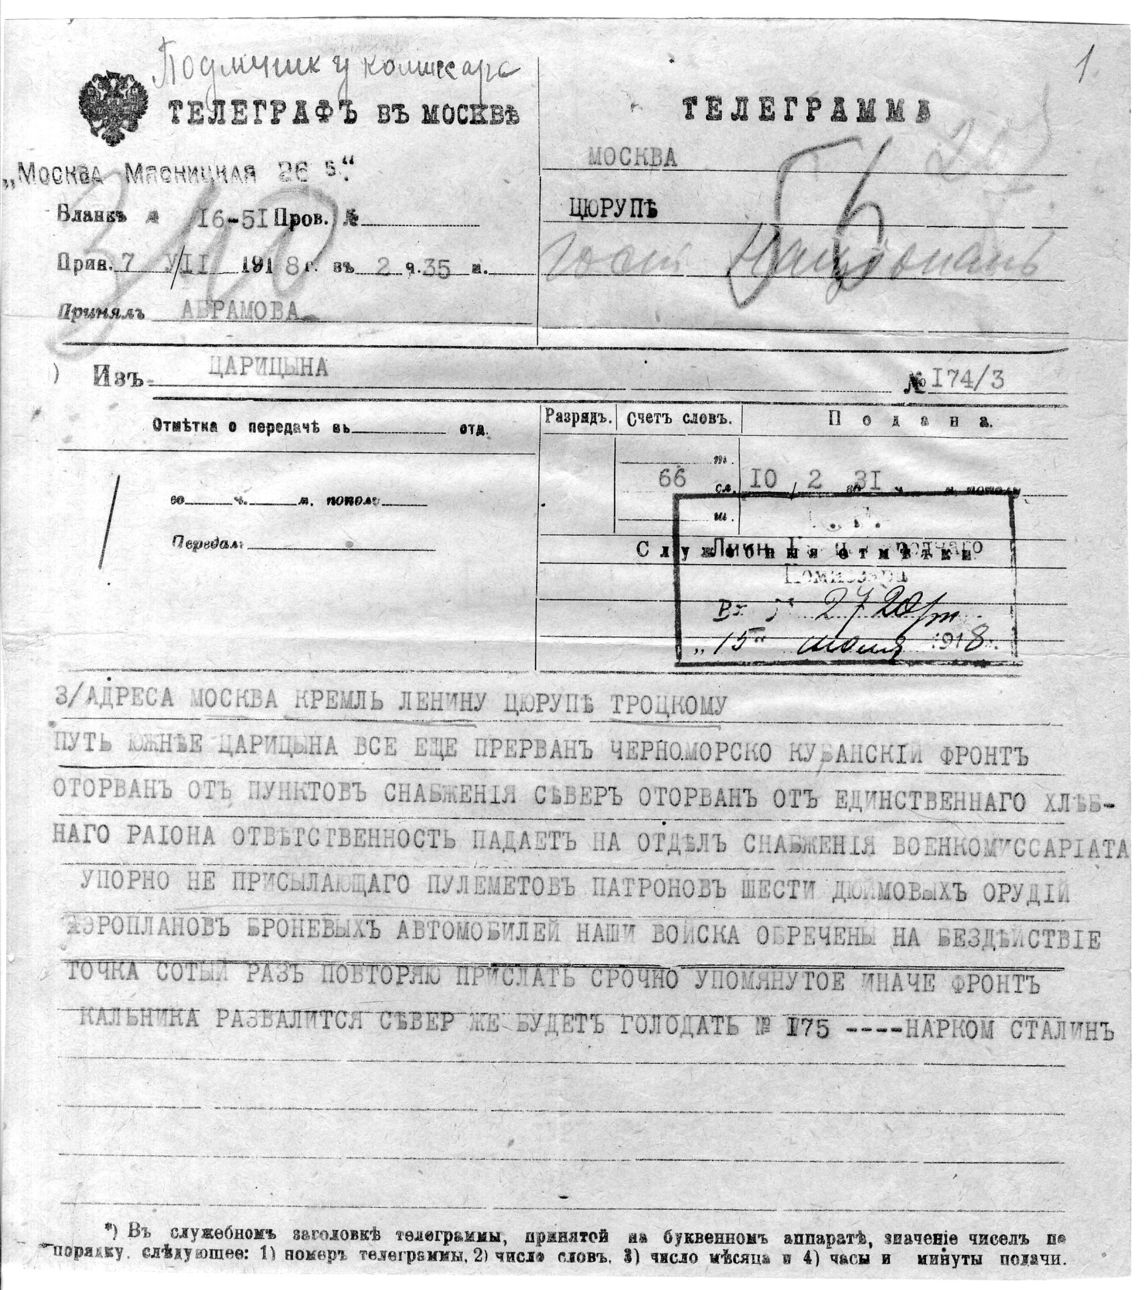 1.
ТЕЛЕГРАФЪ ВЪ МОСКВѢ
„Москва Мясницкая 26
Бланкъ № 16-51 Пров. №
Прин. 7 /VII 1918 г. въ 2 ч. 35 м.
Принялъ АБРАМОВА
ТЕЛЕГРАММА
МОСКВА
ЦЮРУПѢ
Националь
Изъ ЦАРИЦЫНА № 174/3
Отмѣтка о передачѣ въ отд.
во ч. м. пополу
Передал:
Разрядъ. Счетъ словъ. Подана.
66 сл. 10 / 2 31 ч. м. пополу
Служебныя отмѣтки
Комиссара
Вх. № 2720/т
„15“ июля 1918 г.
З/АДРЕСА МОСКВА КРЕМЛЬ ЛЕНИНУ ЦЮРУПѢ ТРОЦКОМУ
ПУТЬ ЮЖНѢЕ ЦАРИЦЫНА ВСЕ ЕЩЕ ПРЕРВАНЪ ЧЕРНОМОРСКО КУБАНСКІЙ ФРОНТЪ
ОТОРВАНЪ ОТЪ ПУНКТОВЪ СНАБЖЕНІЯ СѢВЕРЪ ОТОРВАНЪ ОТЪ ЕДИНСТВЕННАГО ХЛѢБ-
НАГО РАІОНА ОТВѢТСТВЕННОСТЬ ПАДАЕТЪ НА ОТДѢЛЪ СНАБЖЕНІЯ ВОЕНКОМИССАРІАТА
УПОРНО НЕ ПРИСЫЛАЮЩАГО ПУЛЕМЕТОВЪ ПАТРОНОВЪ ШЕСТИ ДЮЙМОВЫХЪ ОРУДІЙ
АЭРОПЛАНОВЪ БРОНЕВЫХЪ АВТОМОБИЛЕЙ НАШИ ВОЙСКА ОБРЕЧЕНЫ НА БЕЗДѢЙСТВІЕ
ТОЧКА СОТЫЙ РАЗЪ ПОВТОРЯЮ ПРИСЛАТЬ СРОЧНО УПОМЯНУТОЕ ИНАЧЕ ФРОНТЪ
КАЛЬНИКА РАЗВАЛИТСЯ СѢВЕР ЖЕ БУДЕТЪ ГОЛОДАТЬ № 175 ----НАРКОМ СТАЛИНЪ
*) Въ служебномъ заголовкѣ телеграммы, принятой на буквенномъ аппаратѣ, значеніе чиселъ по
порядку слѣдующее: 1) номеръ телеграммы, 2) число словъ, 3) число мѣсяца и 4) часы и минуты подачи.